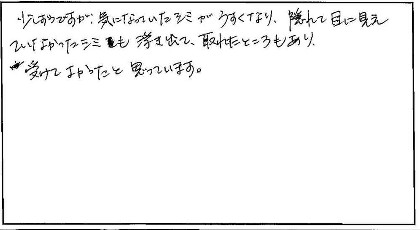 少しずつですが、気になっていたシミがうすくなり、隠れて目に見え
ていなかったシミも浮き出て、取れたところもあり、
受けてよかったと思っています。